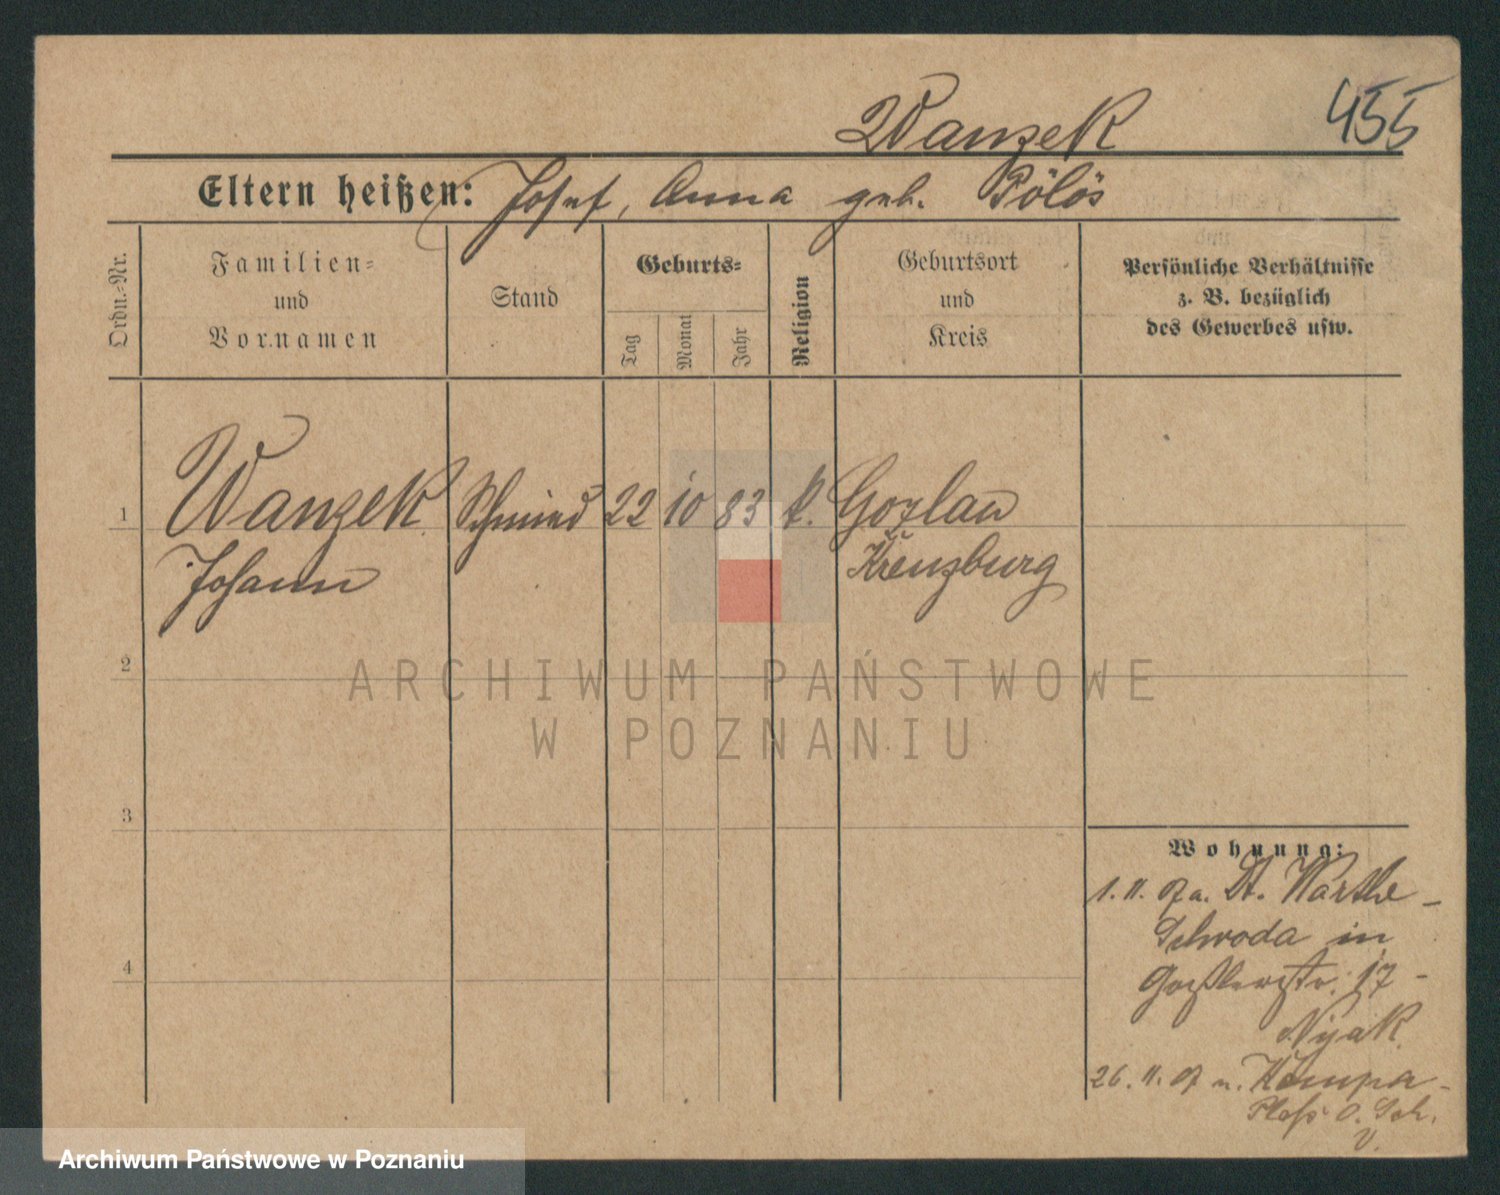 Wanzek 455
Eltern heißen: Josef, Anna geb. Pölös
Ordn.-Nr.
Familien-
und
Vornamen
Stand
Geburts-
Tag
Monat
Jahr
Religion
Geburtsort
und
Kreis
Persönliche Verhältnisse
z. B. bezüglich
des Gewerbes usw.
1 Wanzek Schmied 22 10 83 k. Gozlau
Johann Kreuzburg
2
3
4
Wohnung:
1. 11. 07 a. Dt. Warthe -
Schroda in
Goßlerstr. 17 -
Nyak
26. 11. 07 n. Kempa -
Pleß O. Sch.
V.
ARCHIWUM PAŃSTWOWE
W POZNANIU
Archiwum Państwowe w Poznaniu